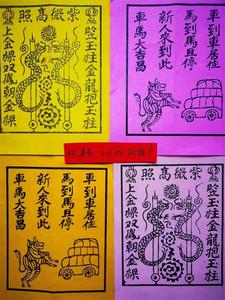 紫微高照
竪玉柱金龍抱玉柱
上金樑双鳳朝金樑
車到車居住
馬到馬且停
新人來到此
車馬大吉昌
車到車居住
馬到馬且停
新人來到此
車馬大吉昌
紫微高照
竪玉柱金龍抱玉柱
上金樑双鳳朝金樑